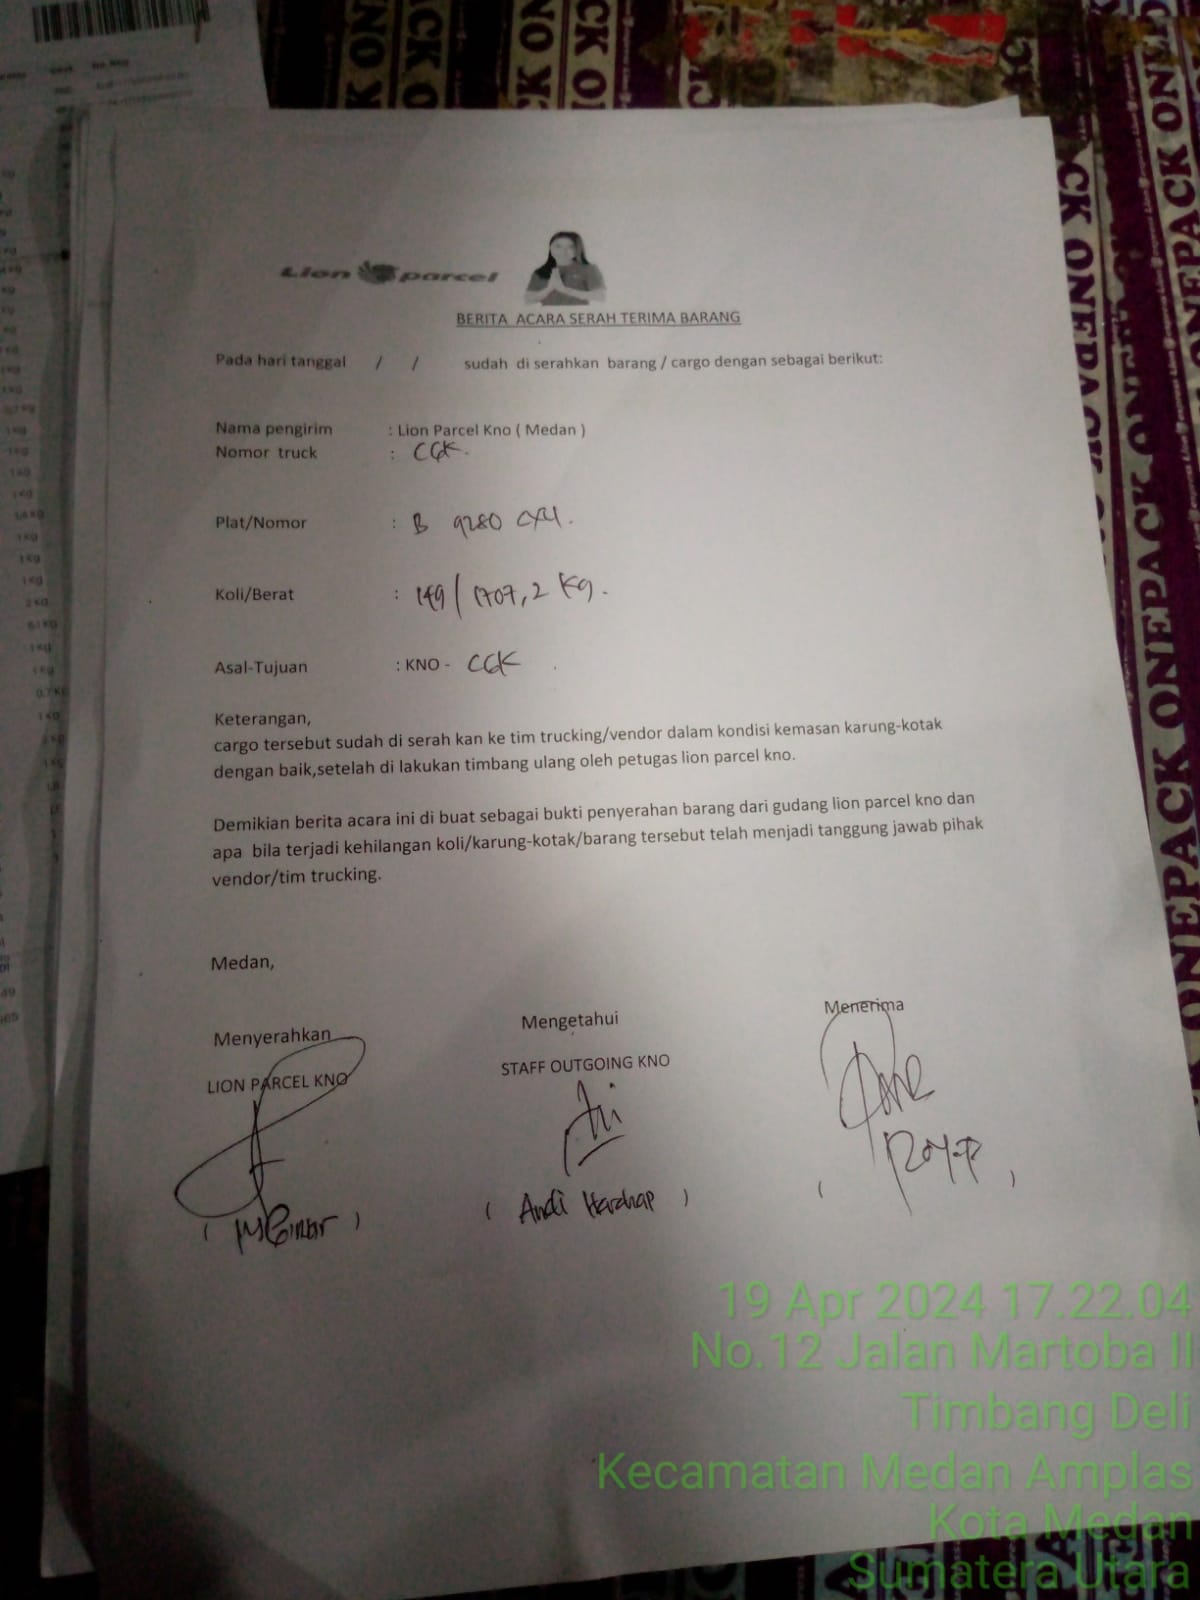 Lion parcel
BERITA ACARA SERAH TERIMA BARANG
Pada hari tanggal / / sudah di serahkan barang / cargo dengan sebagai berikut:
Nama pengirim : Lion Parcel Kno ( Medan )
Nomor truck : CGK.
Plat/Nomor : B 9280 CXU.
Koli/Berat : 149 / 1707,2 Kg.
Asal-Tujuan : KNO - CGK
Keterangan,
cargo tersebut sudah di serah kan ke tim trucking/vendor dalam kondisi kemasan karung-kotak
dengan baik,setelah di lakukan timbang ulang oleh petugas lion parcel kno.
Demikian berita acara ini di buat sebagai bukti penyerahan barang dari gudang lion parcel kno dan
apa bila terjadi kehilangan koli/karung-kotak/barang tersebut telah menjadi tanggung jawab pihak
vendor/tim trucking.
Medan,
Menyerahkan Mengetahui Menerima
LION PARCEL KNO STAFF OUTGOING KNO
( ) ( Andi Harahap ) ( )
19 Apr 2024 17.22.04
No.12 Jalan Martoba II
Timbang Deli
Kecamatan Medan Amplas
Kota Medan
Sumatera Utara
ONEPACK ONEPACK ONEPACK